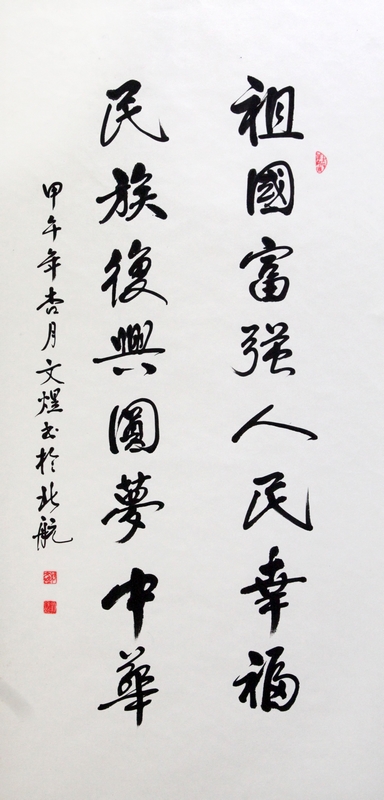 祖國富强人民幸福
民族復興圓夢中華
甲午年杏月文煜書於北航